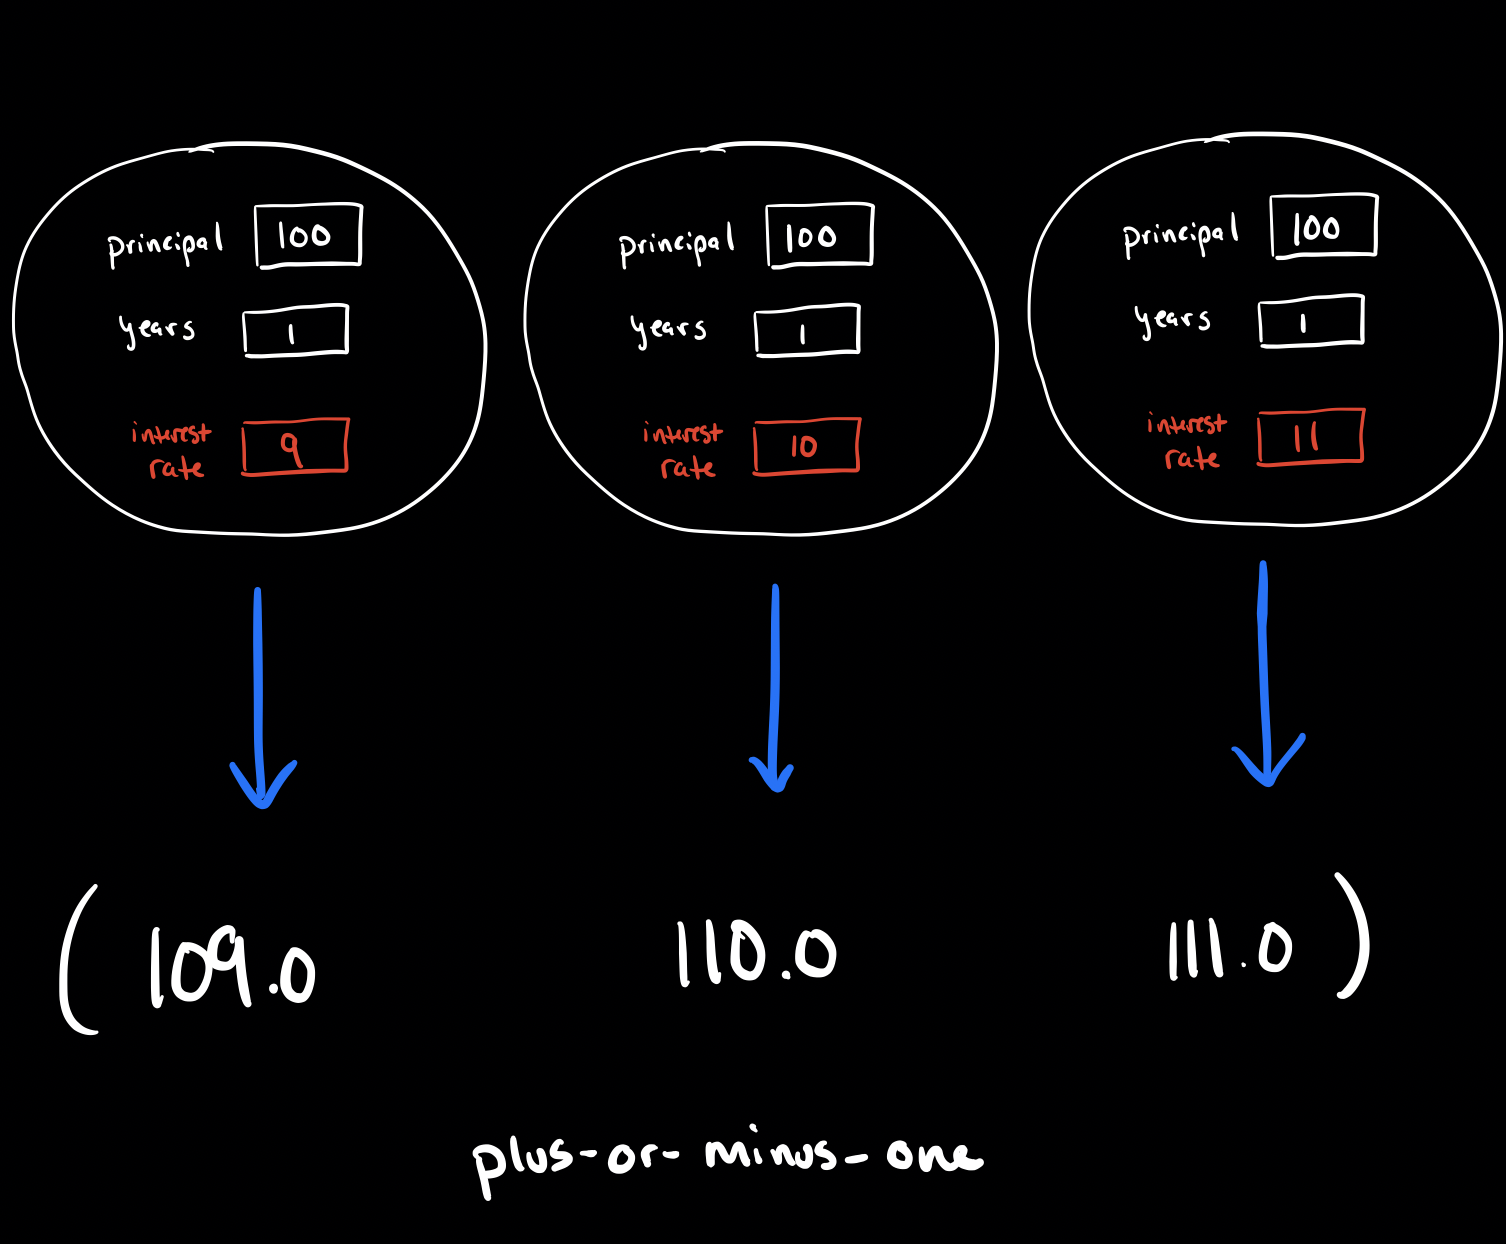 principal 100
years 1
interest
rate 9
principal 100
years 1
interest
rate 10
principal 100
years 1
interest
rate 11
( 109.0 110.0 111.0 )
plus-or-minus-one